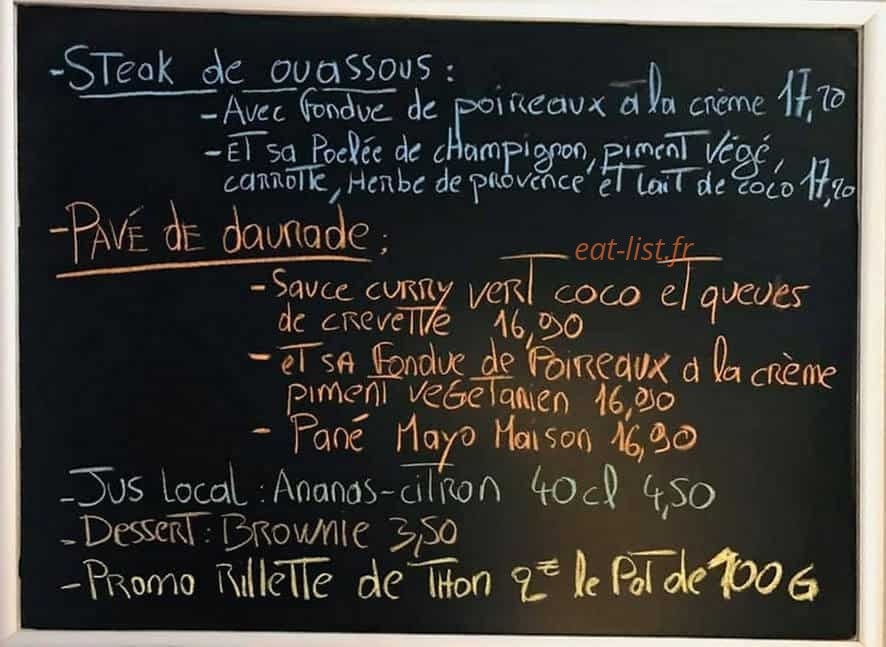 - Steak de ouassous :
- Avec fondue de poireaux a la crème 17,20
- Et sa Poelée de champignon, piment végé,
carrotte, Herbe de provence et lait de coco 17,20
- Pavé de daurade :
eat-list.fr
- Sauce curry vert coco et queues
de crevette 16,90
- et sa fondue de Poireaux a la crème
piment vegetarien 16,90
- Pané Mayo Maison 16,90
- Jus Local : Ananas-citron 40cl 4,50
- Dessert : Brownie 3,50
- Promo Rillette de Thon 2€ le Pot de 100 G